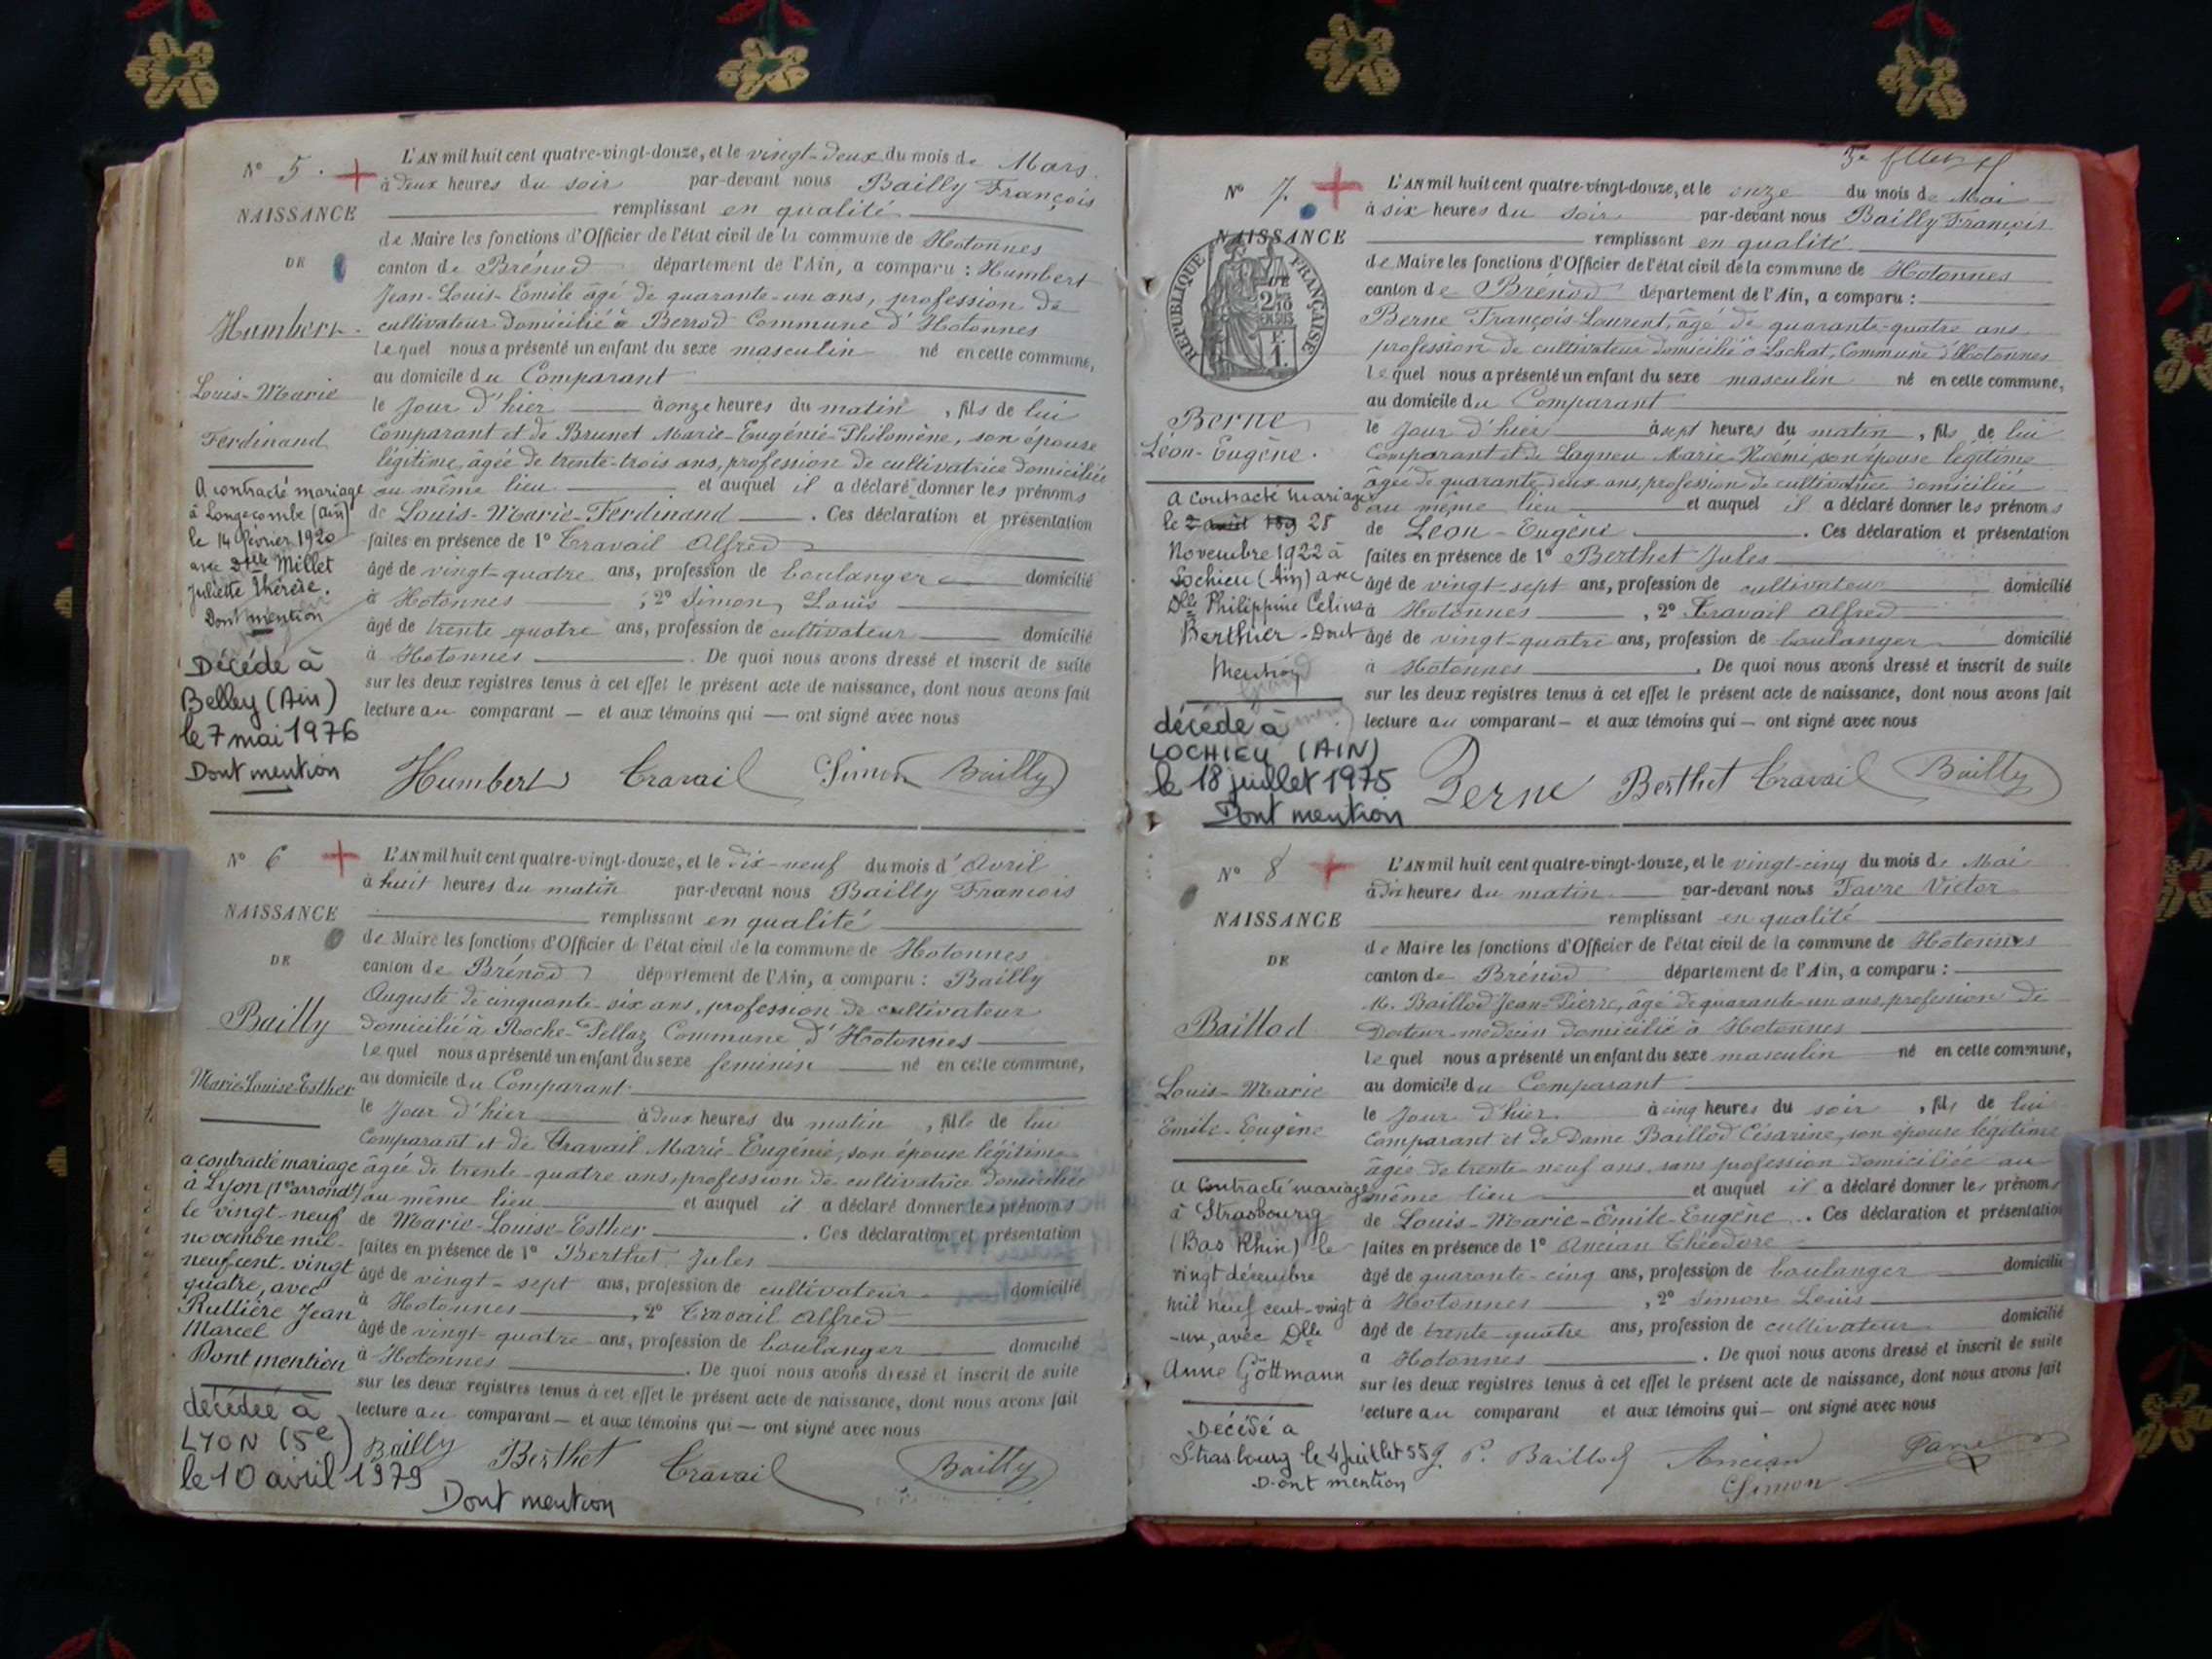 N° 5.
NAISSANCE
DE
Humbert
Louis-Marie
Ferdinand
A contracté mariage
à Longecombe (Ain)
le 14 février 1920
avec Dlle Millet
Juliette Thérèse.
Dont mention
Décédé à
Belley (Ain)
le 7 mai 1976
Dont mention
L'AN mil huit cent quatre-vingt-douze, et le vingt-deux du mois de Mars
à deux heures du soir par-devant nous Bailly François
remplissant en qualité
de Maire les fonctions d'Officier de l'état civil de la commune de Hotonnes
canton de Brénod département de l'Ain, a comparu : Humbert
Jean-Louis-Emile âgé de quarante-un ans, profession de
cultivateur domicilié à Berrod Commune d'Hotonnes
lequel nous a présenté un enfant du sexe masculin né en cette commune,
au domicile du Comparant
le jour d'hier à onze heures du matin, fils de lui
Comparant et de Brunet Marie-Eugénie-Philomène, son épouse
légitime, âgée de trente-trois ans, profession de cultivatrice domiciliée
au même lieu et auquel il a déclaré donner les prénoms
de Louis-Marie-Ferdinand. Ces déclaration et présentation
faites en présence de 1° Travail Alfred
âgé de vingt-quatre ans, profession de boulanger domicilié
à Hotonnes ; 2° Simon Louis
âgé de trente quatre ans, profession de cultivateur domicilié
à Hotonnes. De quoi nous avons dressé et inscrit de suite
sur les deux registres tenus à cet effet le présent acte de naissance, dont nous avons fait
lecture au comparant — et aux témoins qui — ont signé avec nous
Humbert Travail Simon Bailly
N° 6
NAISSANCE
DE
Bailly
Marie-Louise-Esther
a contracté mariage
à Lyon (1er arrondt)
le vingt-neuf
novembre mil-
neuf cent-vingt
quatre, avec
Rullière Jean
Marcel
Dont mention
décédée à
LYON (5e)
le 10 avril 1979
Dont mention
L'AN mil huit cent quatre-vingt-douze, et le dix-neuf du mois d'Avril
à huit heures du matin par-devant nous Bailly François
remplissant en qualité
de Maire les fonctions d'Officier de l'état civil de la commune de Hotonnes
canton de Brénod département de l'Ain, a comparu : Bailly
Auguste de cinquante-six ans, profession de cultivateur
domicilié à Roche-Pellaz Commune d'Hotonnes
lequel nous a présenté un enfant du sexe féminin né en cette commune,
au domicile du Comparant
le jour d'hier à deux heures du matin, fille de lui
Comparant et de Travail Marie-Eugénie, son épouse légitime
âgée de trente-quatre ans, profession de cultivatrice domiciliée
au même lieu et auquel il a déclaré donner les prénoms
de Marie-Louise-Esther. Ces déclaration et présentation
faites en présence de 1° Berthet Jules
âgé de vingt-sept ans, profession de cultivateur domicilié
à Hotonnes, 2° Travail Alfred
âgé de vingt-quatre ans, profession de boulanger domicilié
à Hotonnes. De quoi nous avons dressé et inscrit de suite
sur les deux registres tenus à cet effet le présent acte de naissance, dont nous avons fait
lecture au comparant — et aux témoins qui — ont signé avec nous
Bailly Berthet Travail Bailly
N° 7.
NAISSANCE
RÉPUBLIQUE FRANÇAISE
Berne
Léon-Eugène.
A contracté mariage
le 2 août 189 25
Novembre 1922 à
Lochieu (Ain) avec
Dlle Philippine Célina
Berthier - Dont
Mention
décédé à
LOCHIEU (AIN)
le 18 juillet 1975
Dont mention
L'AN mil huit cent quatre-vingt-douze, et le onze du mois de Mai
à six heures du soir par-devant nous Bailly François
remplissant en qualité
de Maire les fonctions d'Officier de l'état civil de la commune de Hotonnes
canton de Brénod département de l'Ain, a comparu :
Berne François-Laurent, âgé de quarante-quatre ans,
profession de cultivateur domicilié à Lachat, Commune d'Hotonnes
lequel nous a présenté un enfant du sexe masculin né en cette commune,
au domicile du Comparant
le jour d'hier à sept heures du matin, fils de lui
Comparant et de Lagneu Marie-Noémi, son épouse légitime
âgée de quarante-deux ans, profession de cultivatrice domiciliée
au même lieu et auquel il a déclaré donner les prénoms
de Léon-Eugène. Ces déclaration et présentation
faites en présence de 1° Berthet Jules
âgé de vingt-sept ans, profession de cultivateur domicilié
à Hotonnes, 2° Travail Alfred
âgé de vingt-quatre ans, profession de boulanger domicilié
à Hotonnes. De quoi nous avons dressé et inscrit de suite
sur les deux registres tenus à cet effet le présent acte de naissance, dont nous avons fait
lecture au comparant — et aux témoins qui — ont signé avec nous
Berne Berthet Travail Bailly
N° 8
NAISSANCE
DE
Baillod
Louis-Marie
Emile-Eugène
A contracté mariage
à Strasbourg
(Bas Rhin) le
vingt décembre
mil neuf cent-vingt
-un, avec Dlle
Anne Göttmann
Décédé à
Strasbourg le 4 juillet 55
Dont mention
L'AN mil huit cent quatre-vingt-douze, et le vingt-cinq du mois de Mai
à dix heures du matin par-devant nous Favre Victor
remplissant en qualité
de Maire les fonctions d'Officier de l'état civil de la commune de Hotonnes
canton de Brénod département de l'Ain, a comparu :
M. Baillod Jean-Pierre, âgé de quarante-un ans, profession de
Docteur-médecin domicilié à Hotonnes
lequel nous a présenté un enfant du sexe masculin né en cette commune,
au domicile du Comparant
le jour d'hier à cinq heures du soir, fils de lui
Comparant et de Dame Baillod Césarine, son épouse légitime
âgée de trente-neuf ans, sans profession domiciliée au
même lieu et auquel il a déclaré donner les prénoms
de Louis-Marie-Emile-Eugène. Ces déclaration et présentation
faites en présence de 1° Ancian Théodore
âgé de quarante-cinq ans, profession de boulanger domicilié
à Hotonnes, 2° Simon Louis
âgé de trente-quatre ans, profession de cultivateur domicilié
à Hotonnes. De quoi nous avons dressé et inscrit de suite
sur les deux registres tenus à cet effet le présent acte de naissance, dont nous avons fait
lecture au comparant et aux témoins qui — ont signé avec nous
J. P. Baillod Ancian Favre
Simon